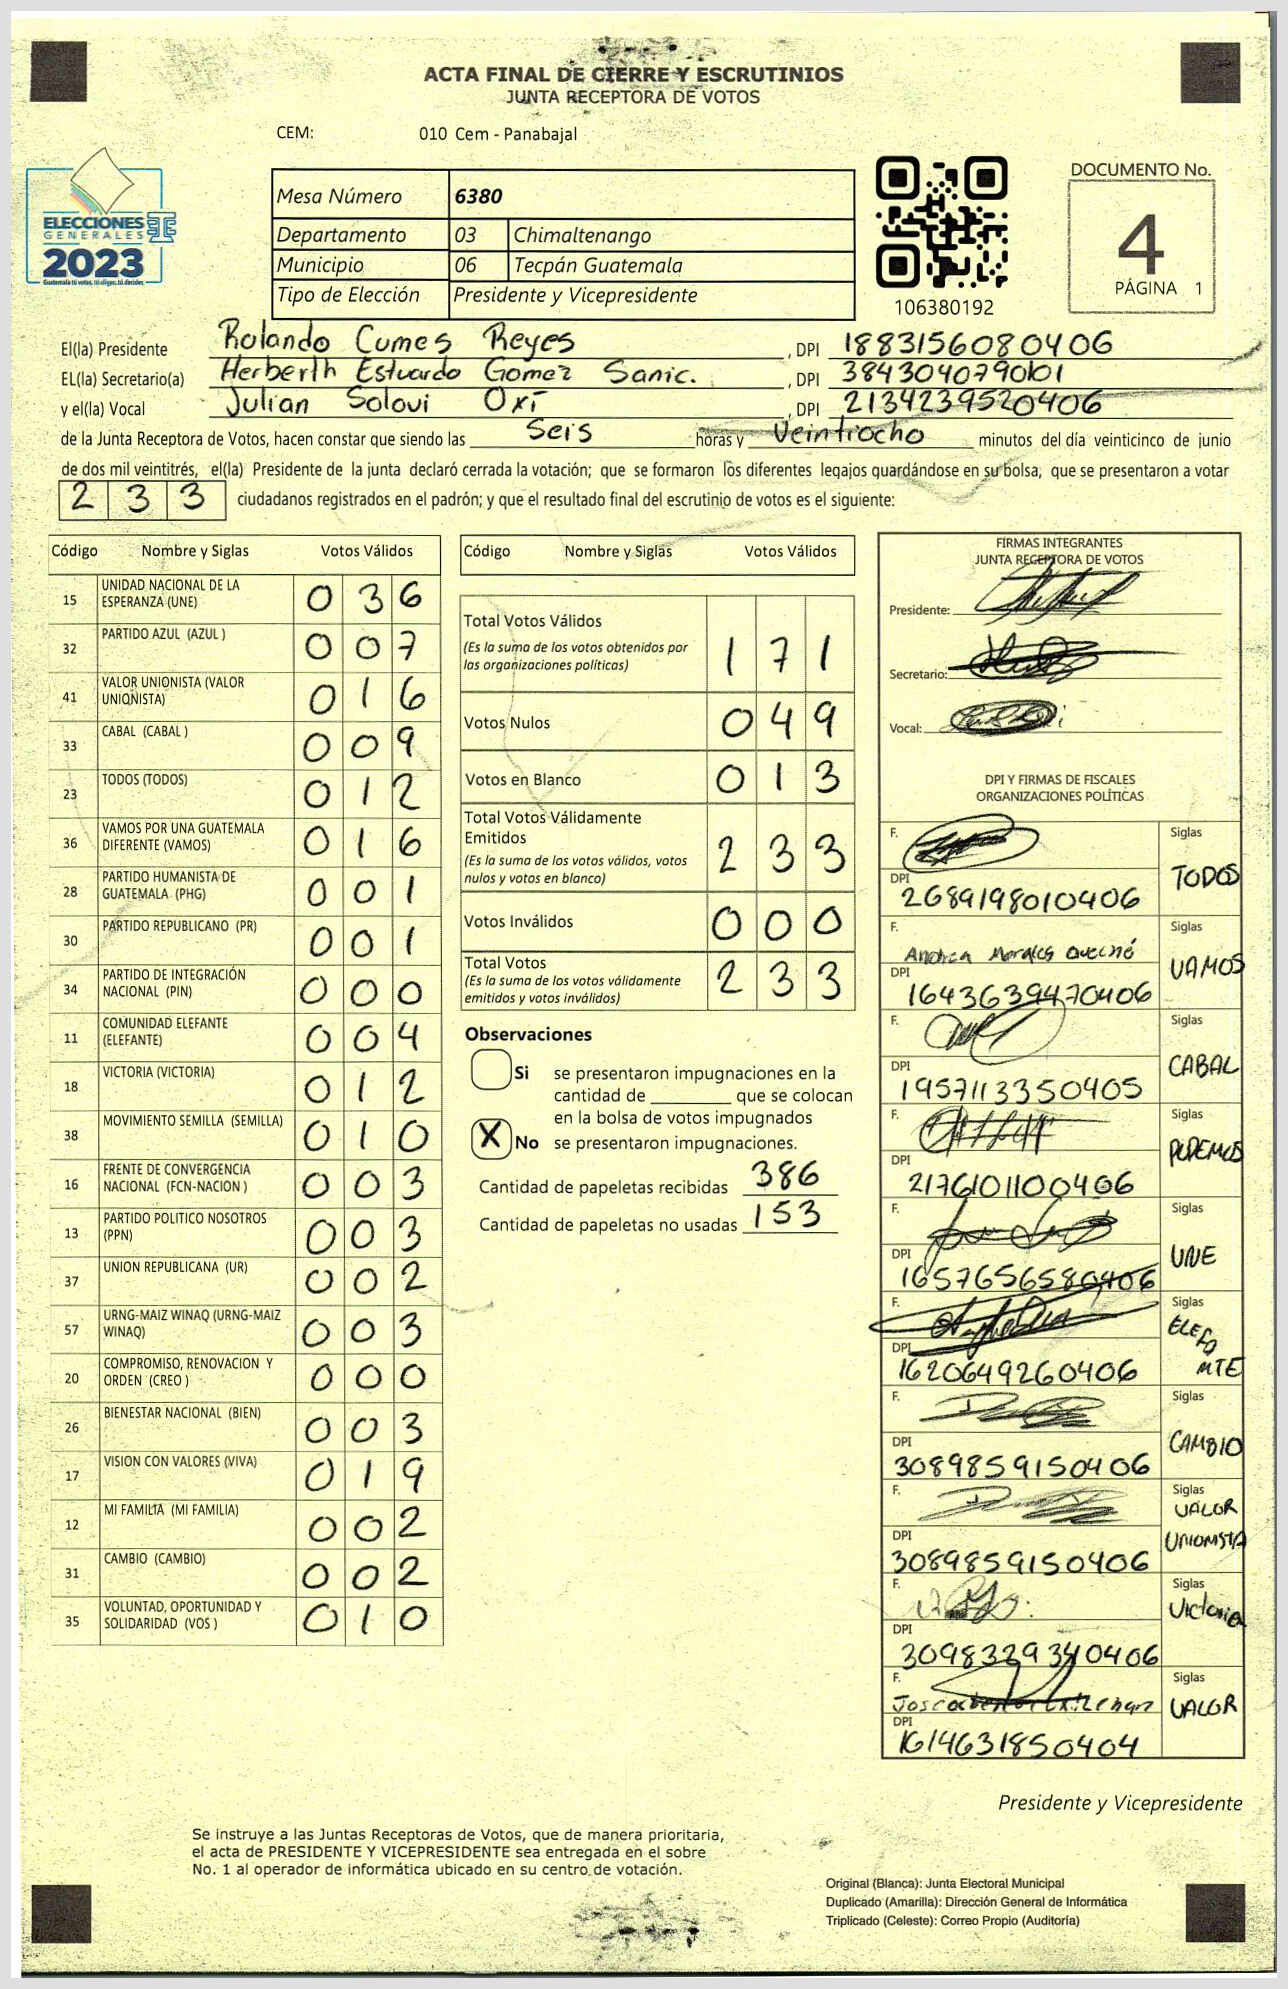 ACTA FINAL DE CIERRE Y ESCRUTINIOS
JUNTA RECEPTORA DE VOTOS
CEM: 010 Cem - Panabajal
ELECCIONES
GENERALES
2023
Guatemala tú votas, tú eliges, tú decides.
Mesa Número 6380
Departamento 03 Chimaltenango
Municipio 06 Tecpán Guatemala
Tipo de Elección Presidente y Vicepresidente
106380192
DOCUMENTO No.
4
PÁGINA 1
El(la) Presidente Rolando Cumes Reyes, DPI 1883156080406
EL(la) Secretario(a) Herberth Estuardo Gomez Sanic., DPI 3843040790101
y el(la) Vocal Julian Solovi Oxí, DPI 2134239520406
de la Junta Receptora de Votos, hacen constar que siendo las Seis horas y Veintiocho minutos del día veinticinco de junio
de dos mil veintitrés, el(la) Presidente de la junta declaró cerrada la votación; que se formaron los diferentes legajos guardándose en su bolsa, que se presentaron a votar
233 ciudadanos registrados en el padrón; y que el resultado final del escrutinio de votos es el siguiente:
Código Nombre y Siglas Votos Válidos
15 UNIDAD NACIONAL DE LA ESPERANZA (UNE) 036
32 PARTIDO AZUL (AZUL ) 007
41 VALOR UNIONISTA (VALOR UNIONISTA) 016
33 CABAL (CABAL ) 009
23 TODOS (TODOS) 012
36 VAMOS POR UNA GUATEMALA DIFERENTE (VAMOS) 016
28 PARTIDO HUMANISTA DE GUATEMALA (PHG) 001
30 PARTIDO REPUBLICANO (PR) 001
34 PARTIDO DE INTEGRACIÓN NACIONAL (PIN) 000
11 COMUNIDAD ELEFANTE (ELEFANTE) 004
18 VICTORIA (VICTORIA) 012
38 MOVIMIENTO SEMILLA (SEMILLA) 010
16 FRENTE DE CONVERGENCIA NACIONAL (FCN-NACION ) 003
13 PARTIDO POLITICO NOSOTROS (PPN) 003
37 UNION REPUBLICANA (UR) 002
57 URNG-MAIZ WINAQ (URNG-MAIZ WINAQ) 003
20 COMPROMISO, RENOVACION Y ORDEN (CREO ) 000
26 BIENESTAR NACIONAL (BIEN) 003
17 VISION CON VALORES (VIVA) 019
12 MI FAMILIA (MI FAMILIA) 002
31 CAMBIO (CAMBIO) 002
35 VOLUNTAD, OPORTUNIDAD Y SOLIDARIDAD (VOS ) 010
Código Nombre y Siglas Votos Válidos
Total Votos Válidos 171
(Es la suma de los votos obtenidos por las organizaciones políticas)
Votos Nulos 049
Votos en Blanco 013
Total Votos Válidamente Emitidos 233
(Es la suma de los votos válidos, votos nulos y votos en blanco)
Votos Inválidos 000
Total Votos 233
(Es la suma de los votos válidamente emitidos y votos inválidos)
Observaciones
Si se presentaron impugnaciones en la
cantidad de ________ que se colocan
en la bolsa de votos impugnados
X No se presentaron impugnaciones.
Cantidad de papeletas recibidas 386
Cantidad de papeletas no usadas 153
FIRMAS INTEGRANTES
JUNTA RECEPTORA DE VOTOS
Presidente:
Secretario:
Vocal:
DPI Y FIRMAS DE FISCALES
ORGANIZACIONES POLÍTICAS
F. Siglas TODOS
DPI 2689198010406
F. Andrea Morales Siglas VAMOS
DPI 1643639470406
F. Siglas CABAL
DPI 1957113350405
F. Siglas PODEMOS
DPI 2176101100406
F. Siglas UNE
DPI 1657656580406
F. Siglas ELEFA NTE
DPI 1620649260406
F. Siglas CAMBIO
DPI 3089859150406
F. Siglas VALOR UNIONISTA
DPI 3089859150406
F. Siglas Victoria
DPI 3098329340406
F. Siglas VALOR
DPI 1614631850404
Presidente y Vicepresidente
Se instruye a las Juntas Receptoras de Votos, que de manera prioritaria,
el acta de PRESIDENTE Y VICEPRESIDENTE sea entregada en el sobre
No. 1 al operador de informática ubicado en su centro de votación.
Original (Blanca): Junta Electoral Municipal
Duplicado (Amarilla): Dirección General de Informática
Triplicado (Celeste): Correo Propio (Auditoría)